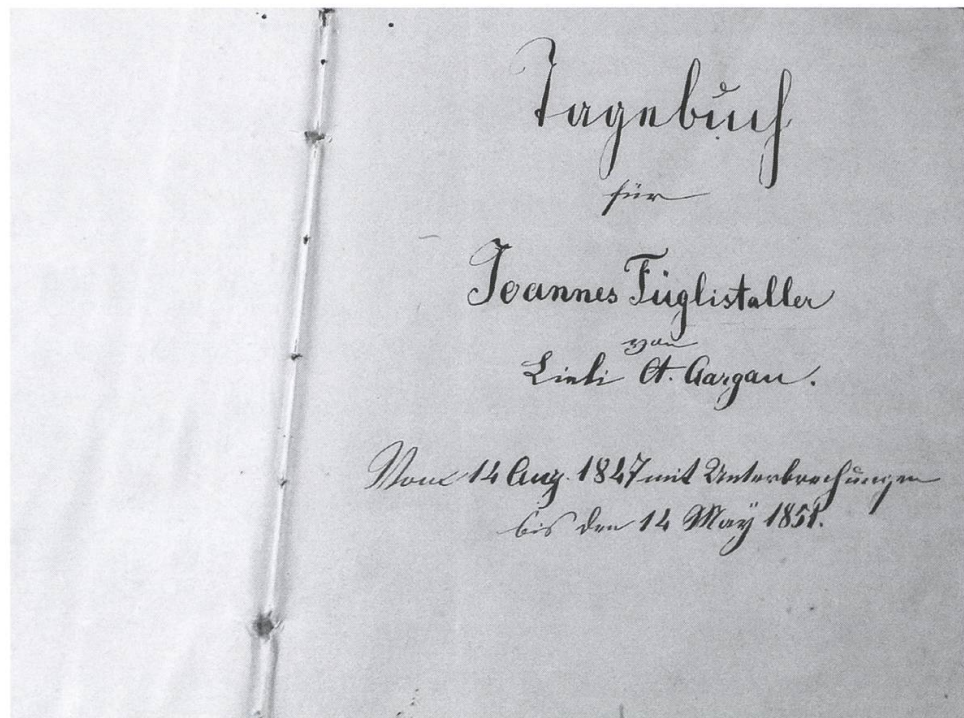 Tagebuch
für
Joannes Füglistaller
von
Lieli Ct. Aargau.
Vom 14 Aug. 1847 mit Unterbrechungen
bis den 14 Maÿ 1851.